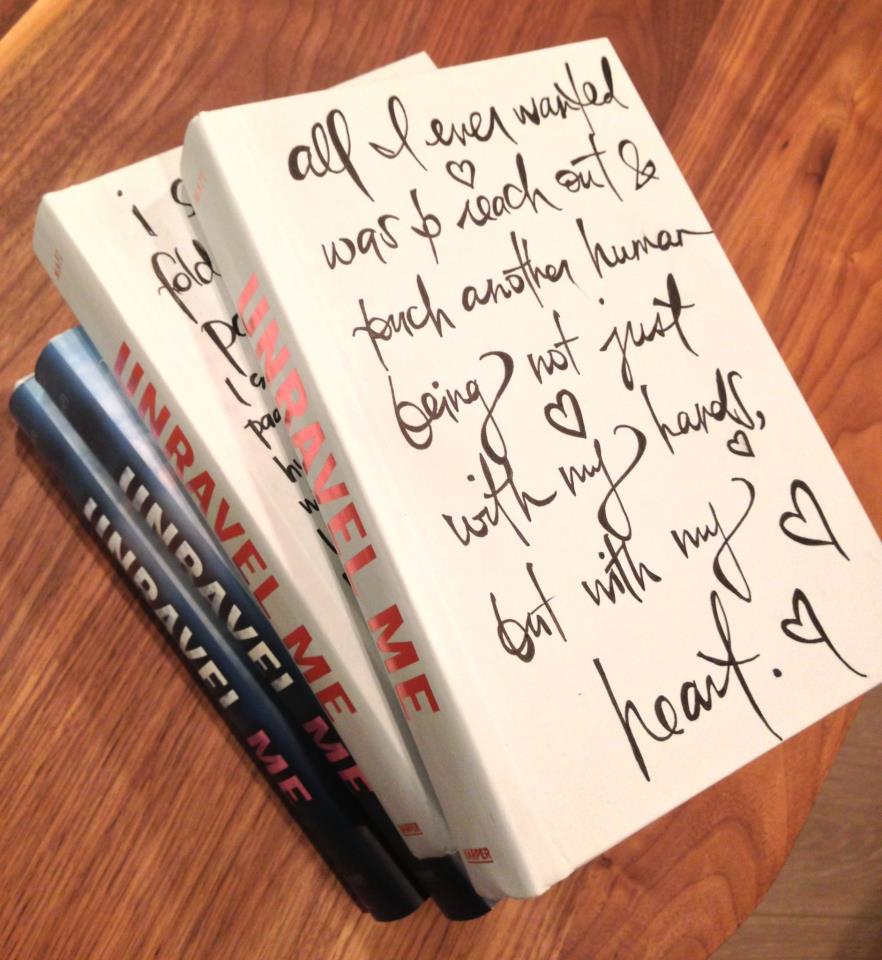 all I ever wanted
was to reach out &
touch another human
being not just
with my hands,
but with my
heart.
i
fold
UNRAVEL ME
HARPER
UNRAVEL ME
HARPER
UNRAVEL ME
UNRAVEL ME